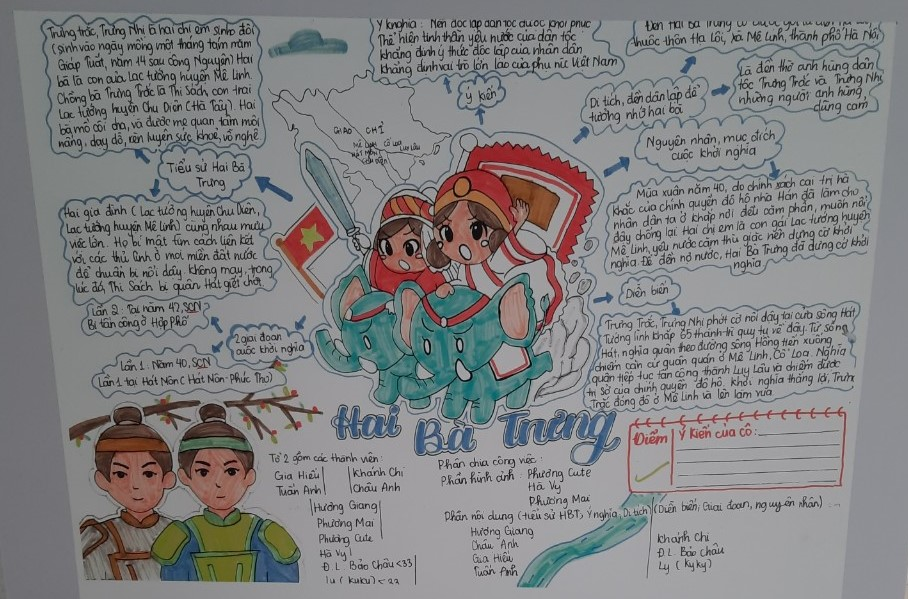 Trưng trắc, Trưng Nhị là hai chị em sinh đôi
(sinh vào ngày mồng một tháng tám năm
Giáp Tuất, năm 14 sau công Nguyên) Hai
bà là con của Lạc tướng huyện Mê Linh.
Chồng bà Trưng Trắc là Thi Sách, con trai
Lạc tướng huyện Chu Diên (Hà Tây). Hai
bà mồ côi cha, và được mẹ quan tâm nuôi
nấng, dạy dỗ, rèn luyện sức khoẻ, võ nghệ
Tiểu sử Hai Bà
Trưng
Hai gia đình (Lạc tướng huyện Chu Diên,
Lạc tướng huyện Mê Linh) cùng nhau mưu
việc lớn. Họ bí mật tìm cách liên kết
với các thủ lĩnh ở mọi miền đất nước
để chuẩn bị nổi dậy. Không may, trong
lúc đó, Thi Sách bị quân Hát giết chết.
Lần 2: Tại năm 42, SCN
Bị tấn công ở Hợp Phố
2 giai đoạn
cuộc khởi nghĩa
Lần 1: Năm 40, SCN
Lần 1 tại Hát Môn (Hát Môn-Phúc Thọ)
Ý nghĩa: Nền độc lập dân tộc được khôi phục
Thể hiện tinh thần yêu nước của dân tộc
khẳng định ý thức độc lập của nhân dân
khẳng định vai trò lớn lao của phụ nữ Việt Nam
Ý kiến
GIAO CHỈ
MÊ LINH CỔ LOA
HÁT MÔN LUY LÂU
CHU DIÊN
Đền Hai Bà Trưng
thuộc thôn Hạ Lôi, xã Mê Linh, thành phố Hà Nội
Di tích, đền dân lập để
tưởng nhớ hai bà
Là đền thờ anh hùng dân
tộc Trưng Trắc và Trưng Nhị
những người anh hùng
dũng cảm
Nguyên nhân, mục đích
cuộc khởi nghĩa
Mùa xuân năm 40, do chính sách cai trị hà
khắc của chính quyền đô hộ nhà Hán đã làm cho
nhân dân ta ở khắp nơi đều căm phẫn, muốn nổi
dậy chống lại. Hai chị em là con gái Lạc tướng huyện
Mê Linh, yêu nước căm thù giặc nên dựng cờ khởi
nghĩa. Để đền nợ nước, Hai Bà Trưng đã dựng cờ khởi
nghĩa
Diễn biến
Trưng Trắc, Trưng Nhị phất cờ nổi dậy tại cửa sông Hát
Tướng lĩnh khắp 65 thành trì quy tụ về đây. Từ sông
Hát, nghĩa quân theo đường sông Hồng tiến xuống
chiếm căn cứ quân quán ở Mê Linh, Cổ Loa. Nghĩa
quân tiếp tục tấn công thành Luy Lâu và chiếm được
trị sở của chính quyền đô hộ. Khởi nghĩa thắng lợi, Trưng
Trắc đóng đô ở Mê Linh và lên làm vua
Hai Bà Trưng
Điểm
Ý kiến của cô:
Tổ 2 gồm các thành viên:
Gia Hiếu
Tuấn Anh
Khánh Chi
Châu Anh
Hương Giang
Phương Mai
Phương Cute
Hà Vy
Đ.L. Bảo Châu <33
Ly (kyky) <33
Phân chia công việc:
Phần hình ảnh: Phương Cute
Hà Vy
Phương Mai
Phần nội dung (tiểu sử HBT, Ý nghĩa, Di tích) (Diễn biến, Giai đoạn, nguyên nhân) ...
Hương Giang
Châu Anh
Gia Hiếu
Tuấn Anh
Khánh Chi
Đ.L. Bảo Châu
Ly (kyky)